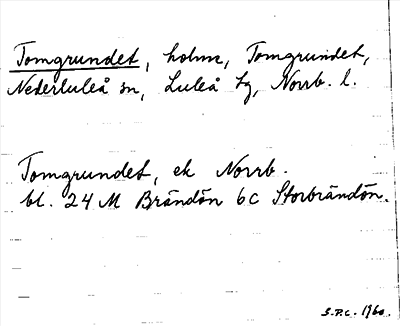 Tomgrundet, holme, Tomgrundet,
Nederluleå sn, Luleå tg, Norrb. l.
Tomgrundet, ek Norrb.
bl. 24 M Brändön 6c Storbrändön.
S.P.C. 1960.